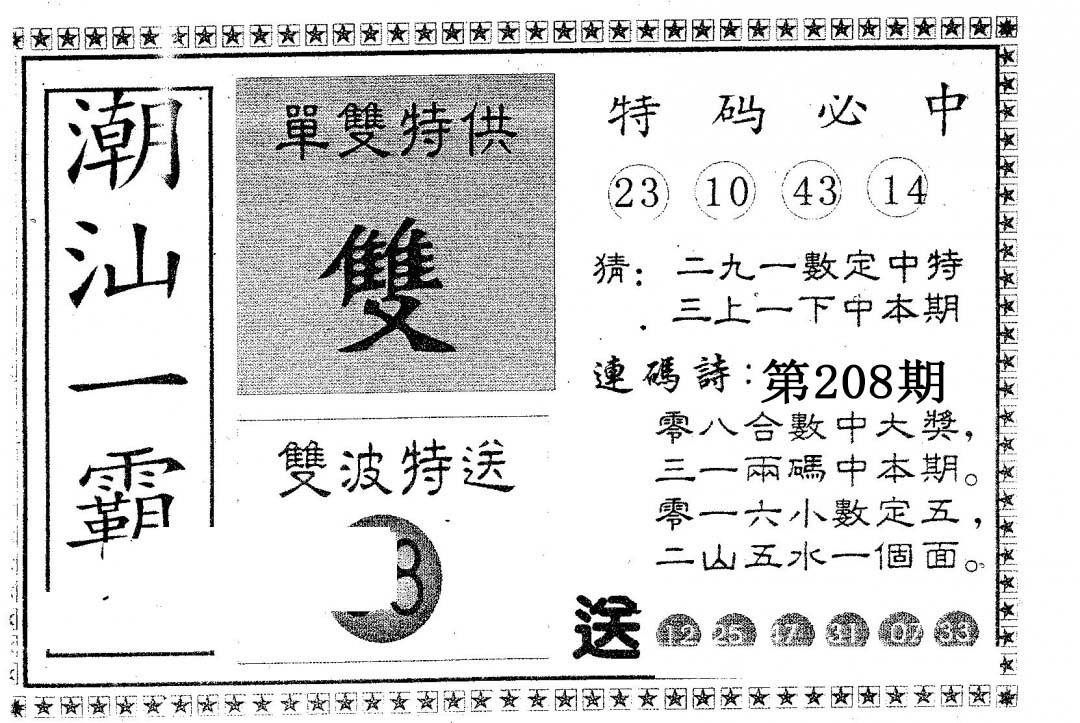 潮汕一霸
單雙特供
雙
雙波特送
特码必中
23 10 43 14
猜：二九一數定中特
三上一下中本期
連碼詩：第208期
零八合數中大獎，
三一兩碼中本期。
零一六小數定五，
二山五水一個面。
送 12 25 47 31 07 33